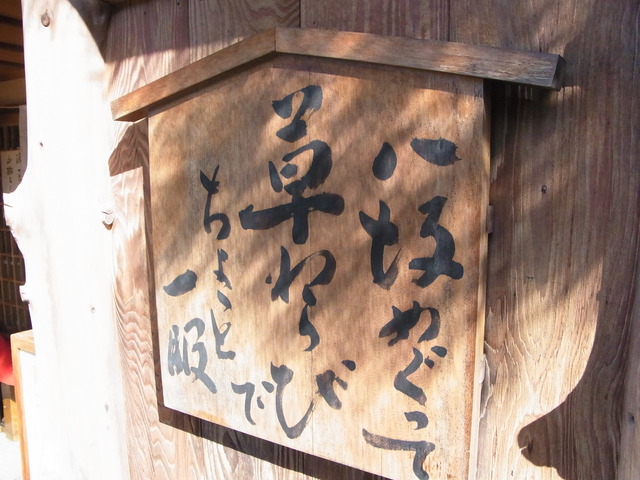 八坂めぐって
草わらびで
ちょっと
一服